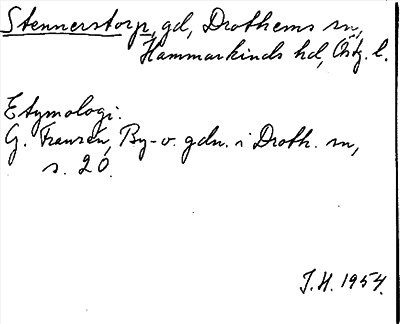 Stennerstorp, gd, Drothems sn,
Hammarkinds hd, Östg. l.
Etymologi.
G. Franzén, By- o. gdn. i Droth. sn,
s. 20.
J.H. 1954.